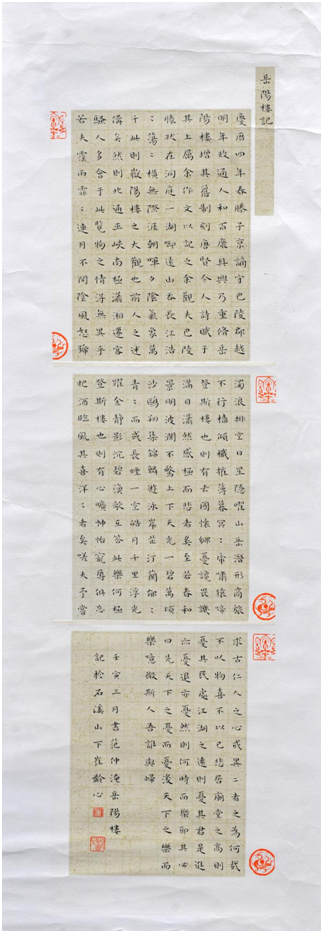 岳陽樓記
慶曆四年春滕子京謫守巴陵郡越
明年政通人和百廢具興乃重脩岳
陽樓增其舊制刻唐賢今人詩賦于
其上屬余作文以記之余觀夫巴陵
勝狀在洞庭一湖啣遠山吞長江浩
：蕩：橫無際涯朝暉夕陰氣象萬
千此則岳陽樓之大觀也前人之述
備矣然則北通巫峽南極瀟湘遷客
騷人多會于此覽物之情得無異乎
若夫霪雨霏：連月不開陰風怒號
濁浪排空日星隱曜山岳潛形商旅
不行檣傾檝摧薄暮冥：虎嘯猿啼
登斯樓也則有去國懷鄉憂讒畏譏
滿目蕭然感極而悲者矣至若春和
景明波瀾不驚上下天光一碧萬頃
沙鷗翔集錦鱗遊泳岸芷汀蘭郁：
青：而或長煙一空皓月千里浮光
躍金靜影沉碧漁歌互答此樂何極
登斯樓也則有心曠神怡寵辱俱忘
把酒臨風其喜洋：者矣嗟夫予嘗
求古仁人之心或異二者之為何哉
不以物喜不以己悲居廟堂之高則
憂其民處江湖之遠則憂其君是進
亦憂退亦憂然則何時而樂耶其必
曰先天下之憂而憂後天下之樂而
樂噫微斯人吾誰與歸
壬寅三月書范仲淹岳陽樓
記於石溪山下崔齡心